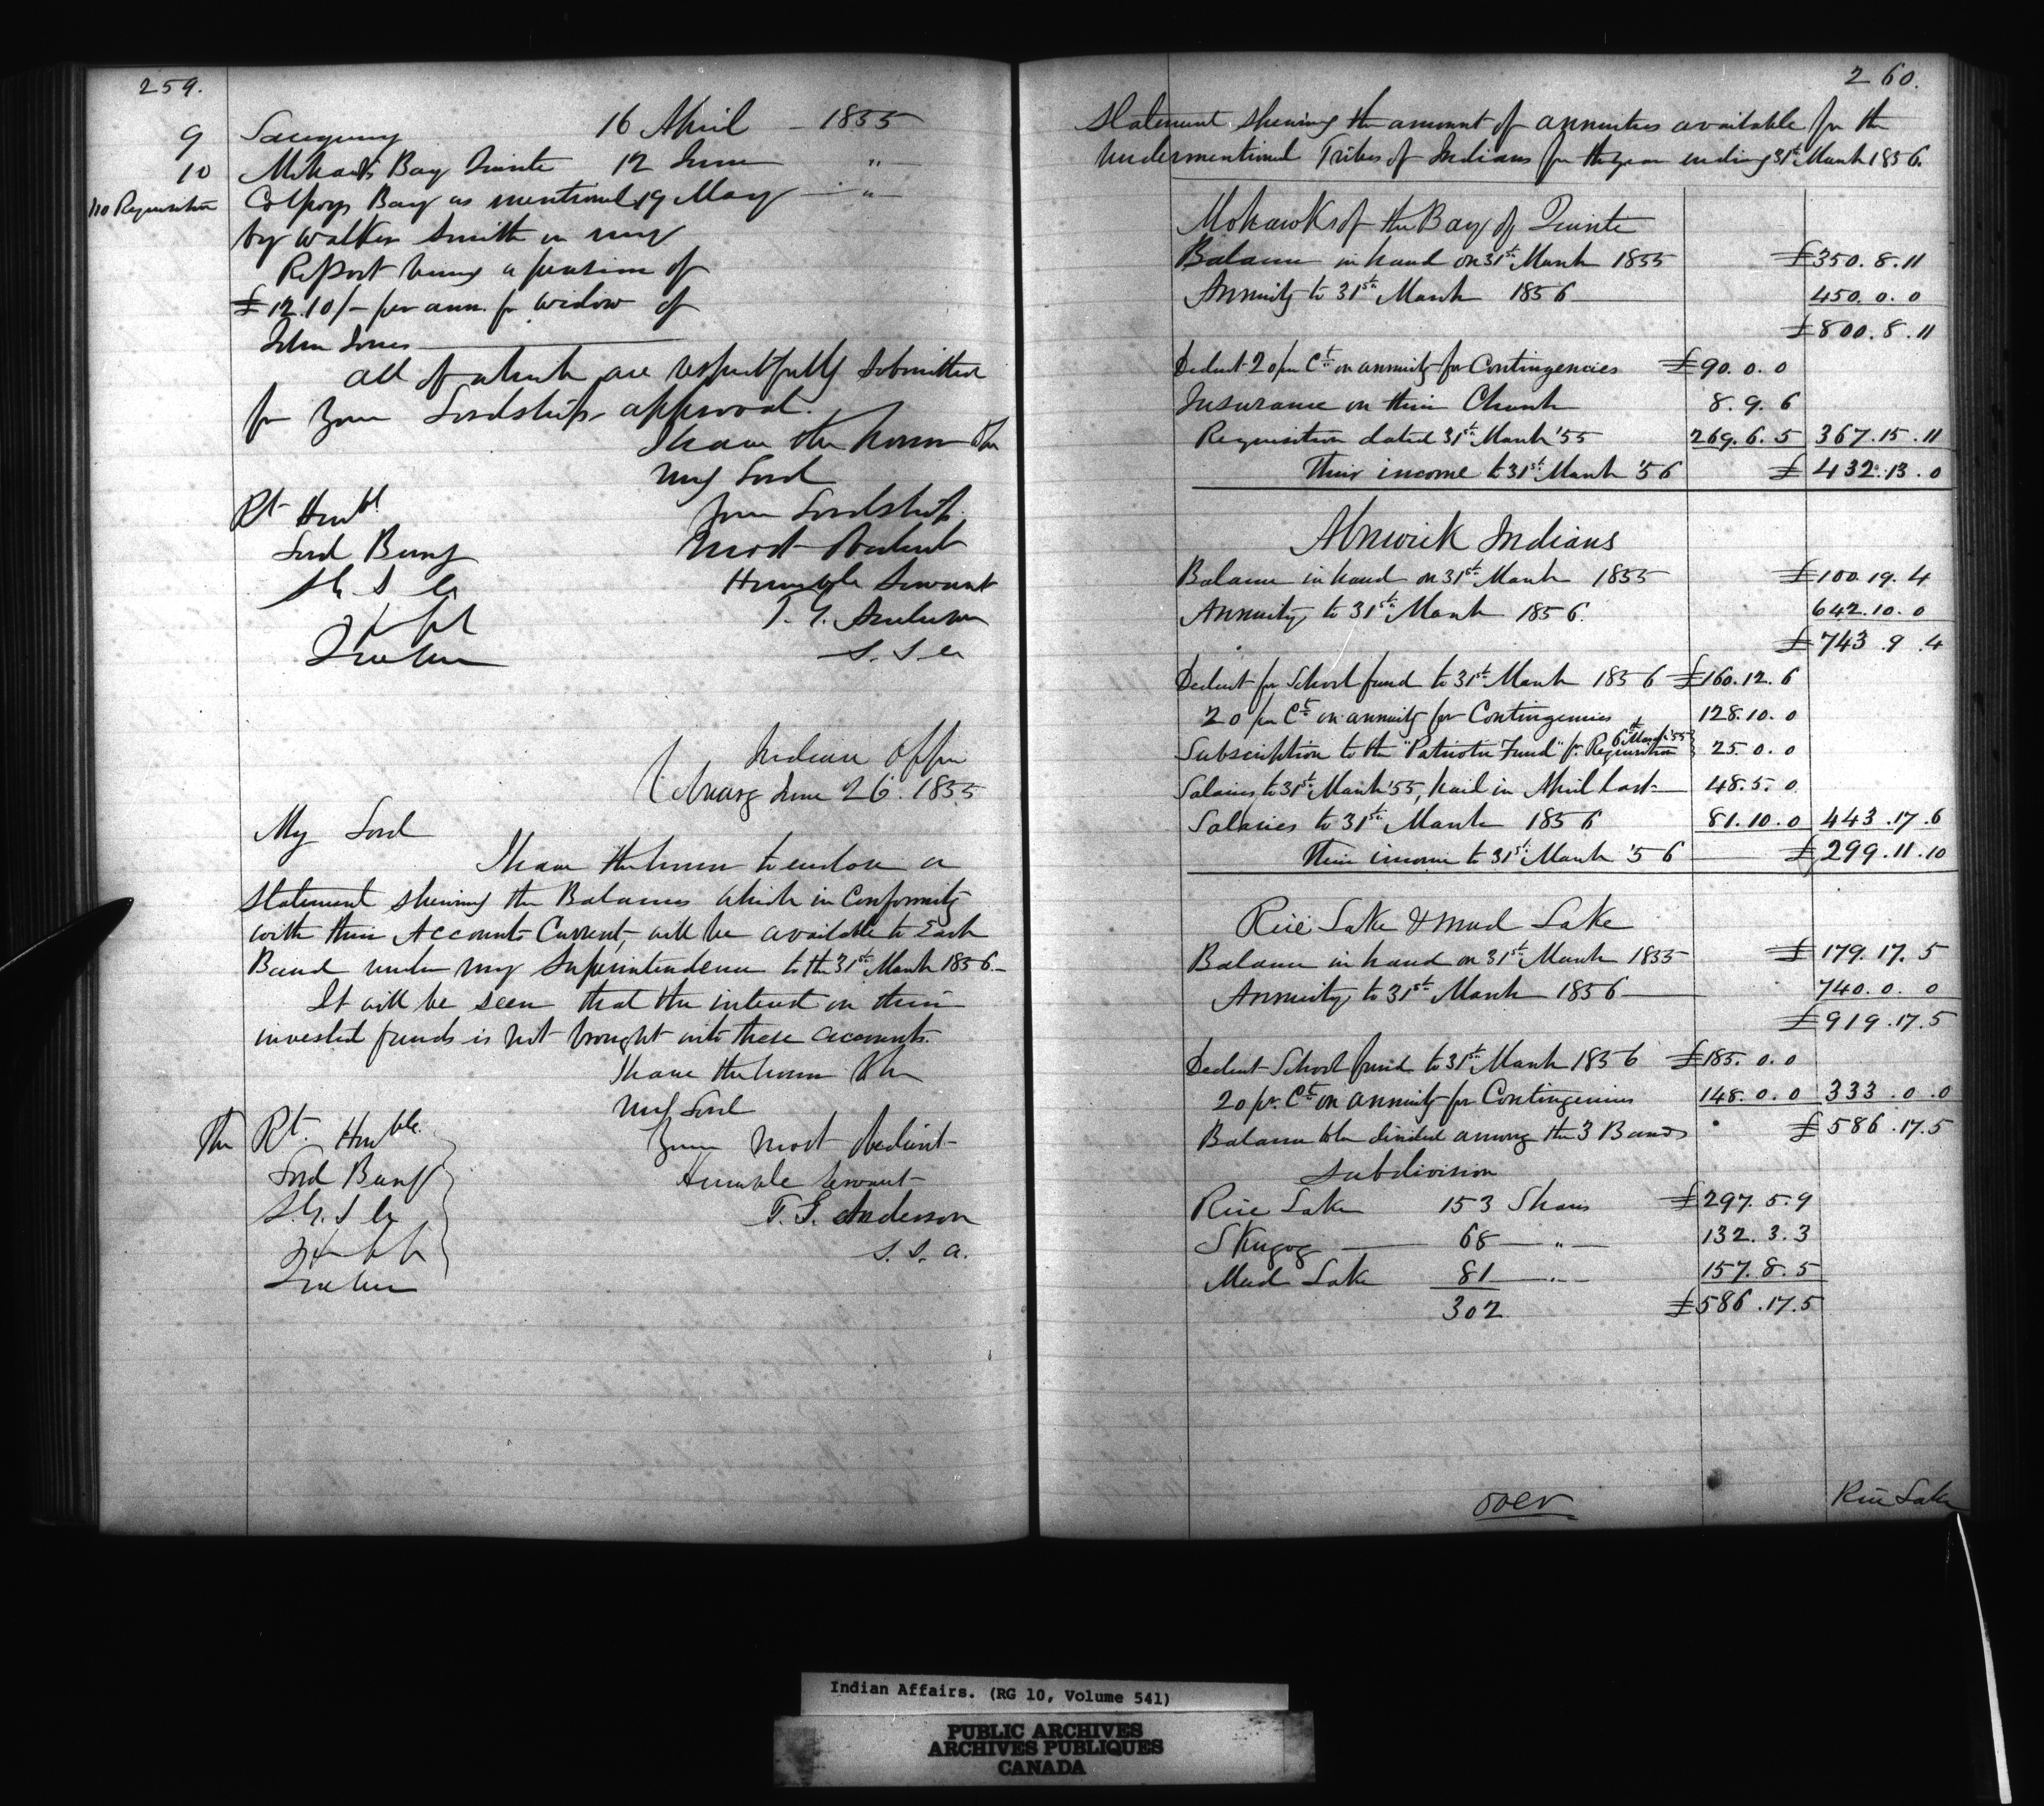 259.
9 Saugeeng 16 April - 1855
10 Mohawks Bay Quinte 12 June "
No Requisition Colpoys Bay as mentioned 19 May "
by Walker Smith in my
Report being a pension of
£12.10/- per ann. for widow of
John Jones
All of which are respectfully submitted
for your Lordships approval.
I have the honor to be
My Lord
Rt Honbl Your Lordships
Lord Bury Most Obedient
S. G. I. A. Humble Servant
T. G. Anderson
Quebec S. I. A.
Indian Office
Cobourg June 26. 1855
My Lord
I have the honor to enclose a
Statement shewing the Balances which in Conformity
with their Accounts Current, will be available to Each
Band under my Superintendence to the 31st March 1856-
It will be seen that the interest on their
invested funds is not brought into these accounts.
I have the honor to be
My Lord
The Rt. Honble. Your most obedient
Lord Bury Humble Servant
S. G. I. A. T. G. Anderson
S. I. A.
Quebec
260.
Statement shewing the amount of annuities available for the
undermentioned Tribes of Indians for the year ending 31st March 1856.
Mohawks of the Bay of Quinte
Balance in hand on 31st March 1855 £350. 8. 11
Annuity to 31st March 1856 450. 0. 0
£800. 8. 11
Deduct 20 per Ct on annuity for Contingencies £90. 0. 0
Insurance on their Church 8. 9. 6
Requisition dated 31st March '55 269. 6. 5 367. 15. 11
Their income to 31st March '56 £432. 13. 0
Alnwick Indians
Balance in hand on 31st March 1855 £100. 19. 4
Annuity to 31st March 1856. 642. 10. 0
£743. 9. 4
Deduct for School fund to 31st March 1856 £160. 12. 6
20 per Ct on annuity for Contingencies 128. 10. 0
Subscription to the "Patriotic Fund" pr. Requisition 6th March '55 25. 0. 0
Salaries to 31st March '55, paid in April last 48. 5. 0
Salaries to 31st March 1856 81. 10. 0 443. 17. 6
Their income to 31st March '56 £299. 11. 10
Rice Lake & Mud Lake
Balance in hand on 31st March 1855 £179. 17. 5
Annuity to 31st March 1856 740. 0. 0
£919. 17. 5
Deduct School fund to 31st March 1856 £185. 0. 0
20 pr. Ct on annuity for Contingencies 148. 0. 0 333. 0. 0
Balance to be divided among the 3 Bands £586. 17. 5
Subdivision
Rice Lake 153 Shares £297. 5. 9
Skugog 68 " 132. 3. 3
Mud Lake 81 " 157. 8. 5
302 £586. 17. 5
over Rice Lake
Indian Affairs. (RG 10, Volume 541)
PUBLIC ARCHIVES
ARCHIVES PUBLIQUES
CANADA